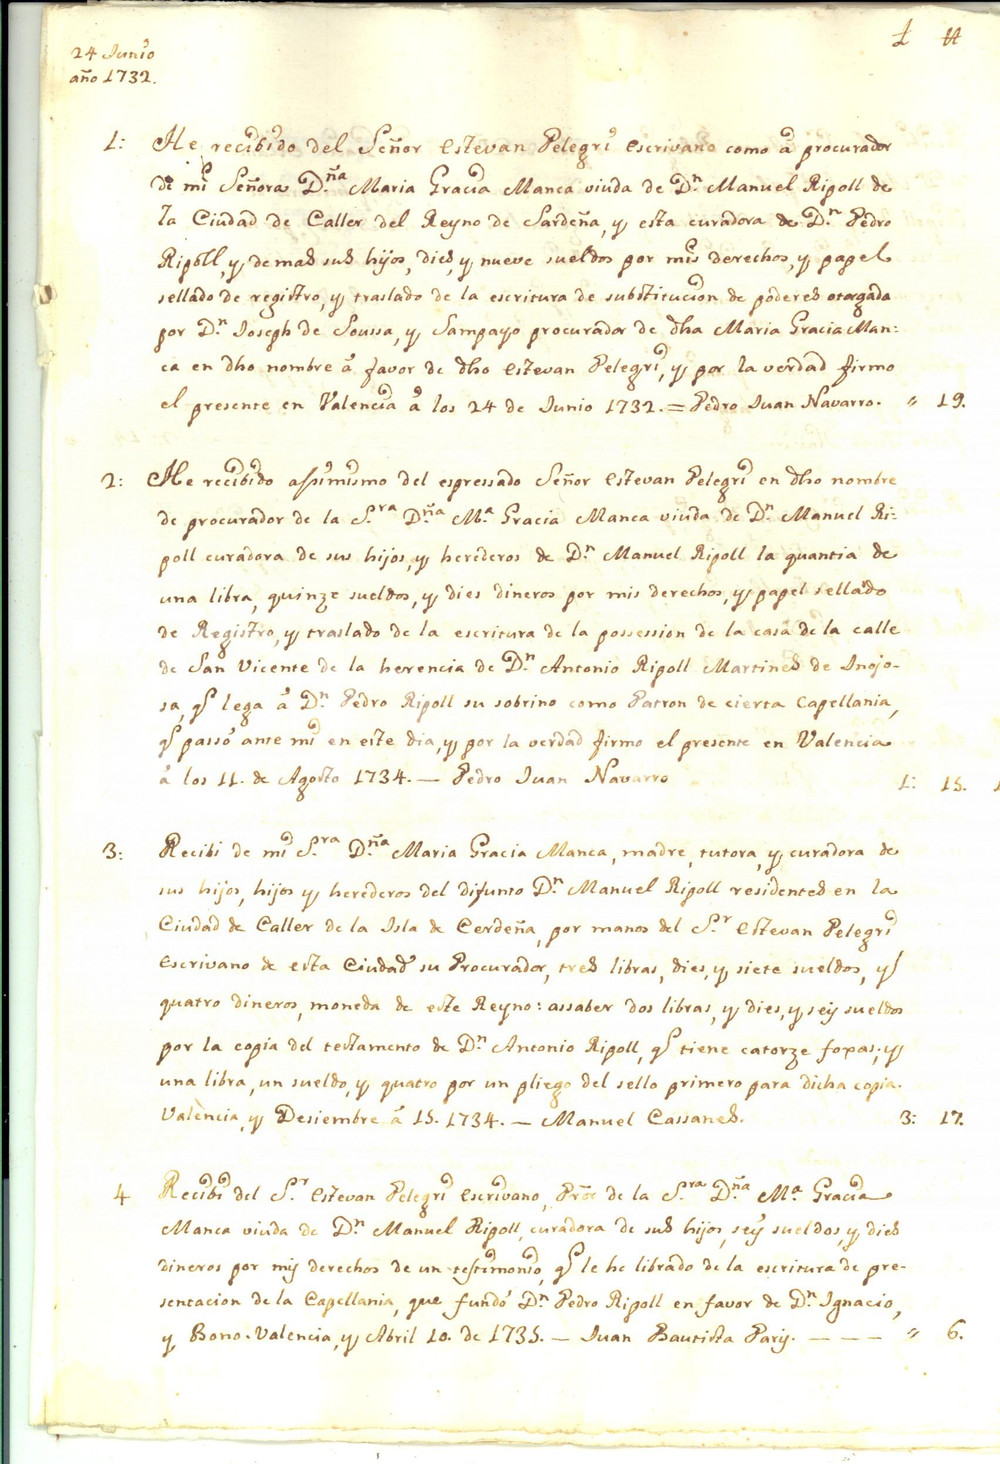 24 Junio
año 1732.
1 #
1: He recibido del Señor Estevan Pelegri Escrivano como á procurador
de mi Señora D.ña Maria Gracia Manca viuda de D.n Manuel Ripoll de
la Ciudad de Caller del Reyno de Sardeña, y esta curadora de D.n Pedro
Ripoll, y demas sus hijos, dies, y nueve sueldos por mis derechos, y papel
sellado de registro, y traslado de la escritura de substitucion de poderes otorgada
por D.n Joseph de Soussa, y Sampayo procurador de dha Maria Gracia Man:
ca en dho nombre á favor de dho Estevan Pelegri, y por la verdad firmo
el presente en Valencia á los 24 de Junio 1732. = Pedro Juan Navarro. " 19.
2: He recibido assimismo del espressado Señor Estevan Pelegri en dho nombre
de procurador de la S.ra D.ña M.a Gracia Manca viuda de D.n Manuel Ri:
poll curadora de sus hijos, y herederos de D.n Manuel Ripoll la quantia de
una libra, quinze sueldos, y dies dineros por mis derechos, y papel sellado
de Registro, y traslado de la escritura de la possession de la casa de la calle
de San Vicente de la herencia de D.n Antonio Ripoll Martines de Inojo-
sa, q.e lega á D.n Pedro Ripoll su sobrino como Patron de cierta Capellania,
q.e passó ante mi en este dia, y por la verdad firmo el presente en Valencia
á los 11. de Agosto 1734. — Pedro Juan Navarro 1: 15. 1
3: Recibi de mi S.ra D.ña Maria Gracia Manca, madre, tutora, y curadora de
sus hijos, hijos y herederos del difunto D.n Manuel Ripoll residentes en la
Ciudad de Caller de la Isla de Cerdeña, por manos del S.r Estevan Pelegri
Escrivano de esta Ciudad su Procurador, tres libras, dies, y siete sueldos, y
quatro dineros, moneda de este Reyno: assaber dos libras, y dies, y seis sueldos
por la copia del testamento de D.n Antonio Ripoll, q.e tiene catorze foxas; y
una libra, un sueldo, y quatro por un pliego del sello primero para dicha copia.
Valencia, y Desiembre á 15. 1734. — Manuel Cassanes. 3: 17.
4 Recibi del S.r Estevan Pelegri Escrivano, Pror de la S.ra D.ña M.a Gracia
Manca viuda de D.n Manuel Ripoll, curadora de sus hijos, seis sueldos, y dies
dineros por mis derechos de un testimonio, q.e le he librado de la escritura de pre-
sentacion de la Capellania, que fundó D.n Pedro Ripoll en favor de D.n Ignacio,
y Bono. Valencia, y Abril 10. de 1735. — Juan Bautista Paris. — — — " 6.